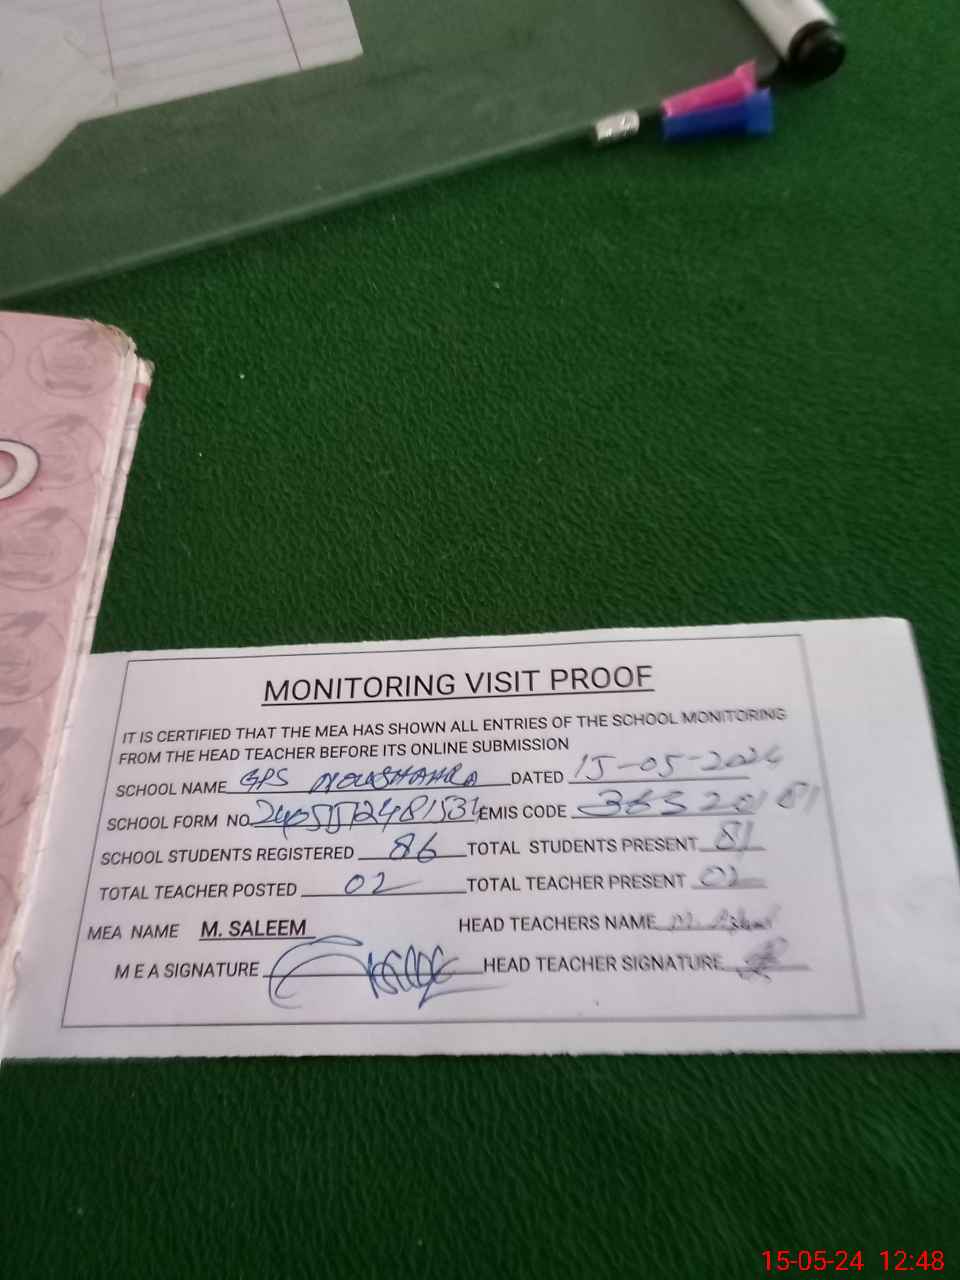 MONITORING VISIT PROOF
IT IS CERTIFIED THAT THE MEA HAS SHOWN ALL ENTRIES OF THE SCHOOL MONITORING
FROM THE HEAD TEACHER BEFORE ITS ONLINE SUBMISSION
SCHOOL NAME GPS NOUSHAHRA DATED 15-05-2024
SCHOOL FORM NO. EMIS CODE
SCHOOL STUDENTS REGISTERED 86 TOTAL STUDENTS PRESENT 81
TOTAL TEACHER POSTED 02 TOTAL TEACHER PRESENT 02
MEA NAME M. SALEEM HEAD TEACHERS NAME M.
M E A SIGNATURE HEAD TEACHER SIGNATURE
15-05-24 12:48